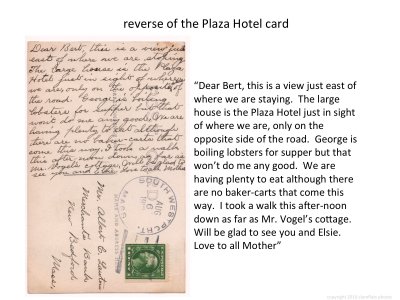 reverse of the Plaza Hotel card
Dear Bert, this is a view just
east of where we are staying.
The large house is the Plaza
Hotel just in sight of where
we are, only on the opposite of
the road. George is boiling
lobsters for supper but that
won't do me any good. We are
having plenty to eat although
there are no baker-carts that
come this way. I took a walk
this after-noon down as far as
Mr. Vogel's cottage. Will be glad to
see you and Elsie. Love to all Mother
Mr. Albert C.
Merchants Bank
New Bedford
Mass.
SOUTH WESTPORT
AUG
6
MASS.
"Dear Bert, this is a view just east of
where we are staying. The large
house is the Plaza Hotel just in sight
of where we are, only on the
opposite side of the road. George is
boiling lobsters for supper but that
won't do me any good. We are
having plenty to eat although there
are no baker-carts that come this
way. I took a walk this after-noon
down as far as Mr. Vogel's cottage.
Will be glad to see you and Elsie.
Love to all Mother"